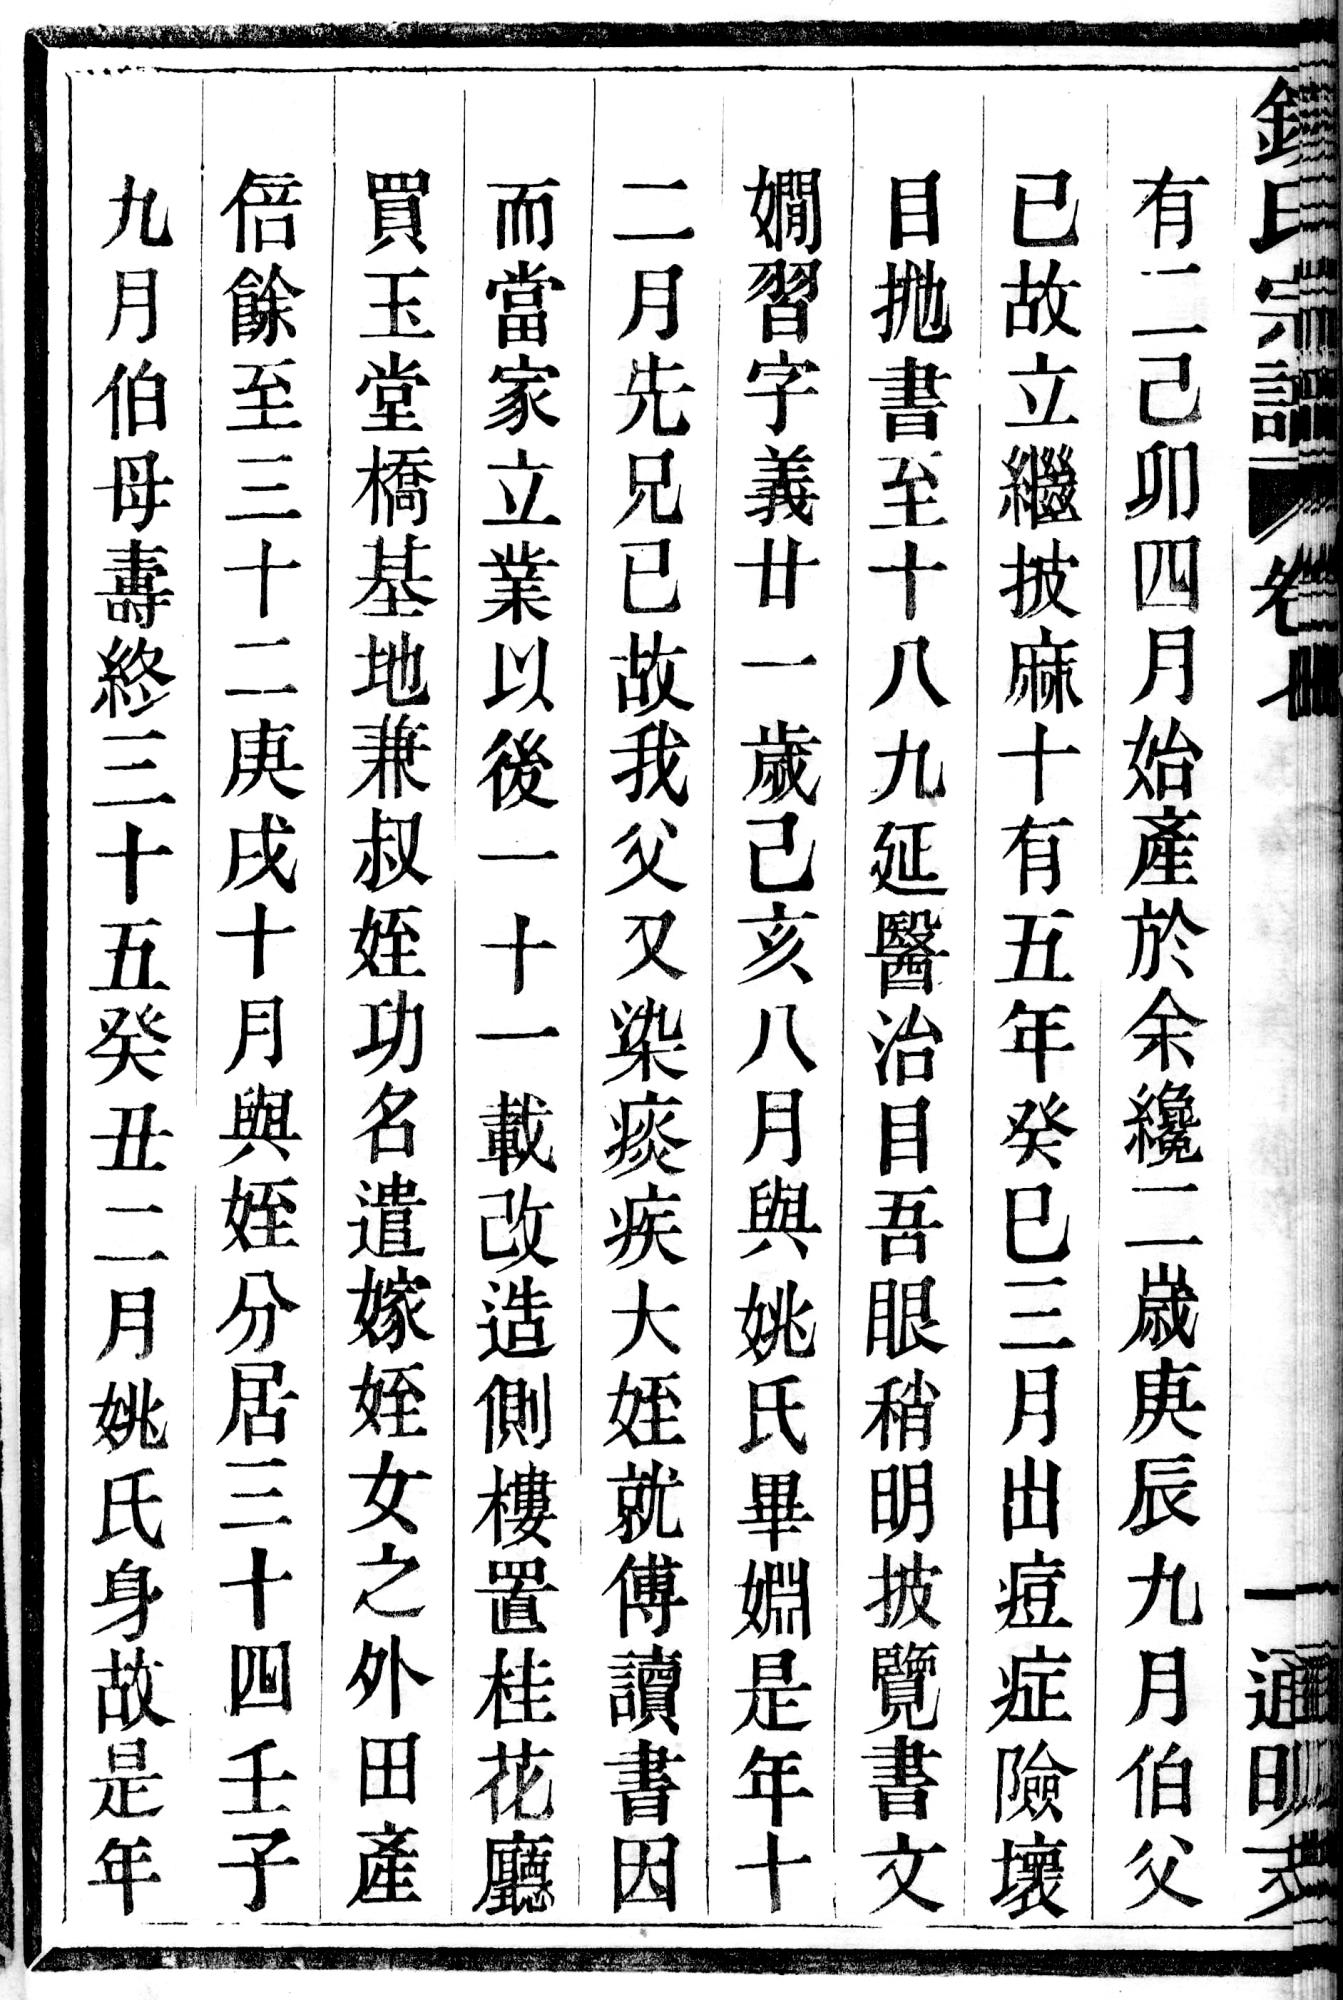 有二己卯四月始產於余纔二歲庚辰九月伯父
已故立繼披麻十有五年癸巳三月出痘症險壞
目拋書至十八九延醫治目吾眼稍明披覽書文
嫺習字義廿一歲己亥八月與姚氏畢婣是年十
二月先兄已故我父又染痰疾大姪就傅讀書因
而當家立業以後一十一載改造側樓置桂花廳
買玉堂橋基地兼叔姪功名遣嫁姪女之外田產
倍餘至三十二庚戌十月與姪分居三十四壬子
九月伯母壽終三十五癸丑二月姚氏身故是年
氏宗譜 卷 一 通明支